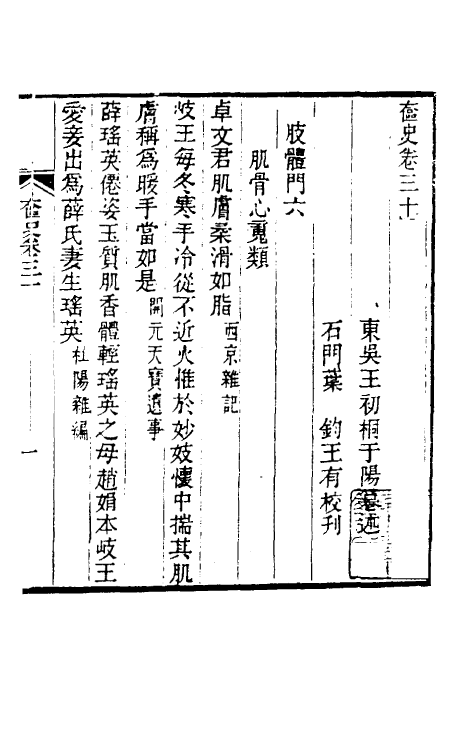 奩史卷三十
東吳王初桐于陽纂述
石門葉 鈞王有校刊
肢體門六
肌骨心竅類
卓文君肌膚柔滑如脂西京雜記
岐王每冬寒手冷從不近火惟於妙妓懷中揣其肌
膚稱爲暖手當如是開元天寶遺事
薛瑤英僊姿玉質肌香體輕瑤英之母趙娟本岐王
愛妾出爲薛氏妻生瑤英杜陽雜編
奩史卷三十
一